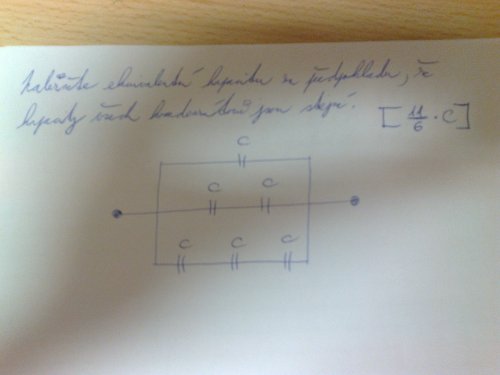 Nalezněte ekvivalentní kapacitu za předpokladu, že
kapacity všech kondenzátorů jsou stejné.
[ 11/6 · C ]
C
C C
C C C